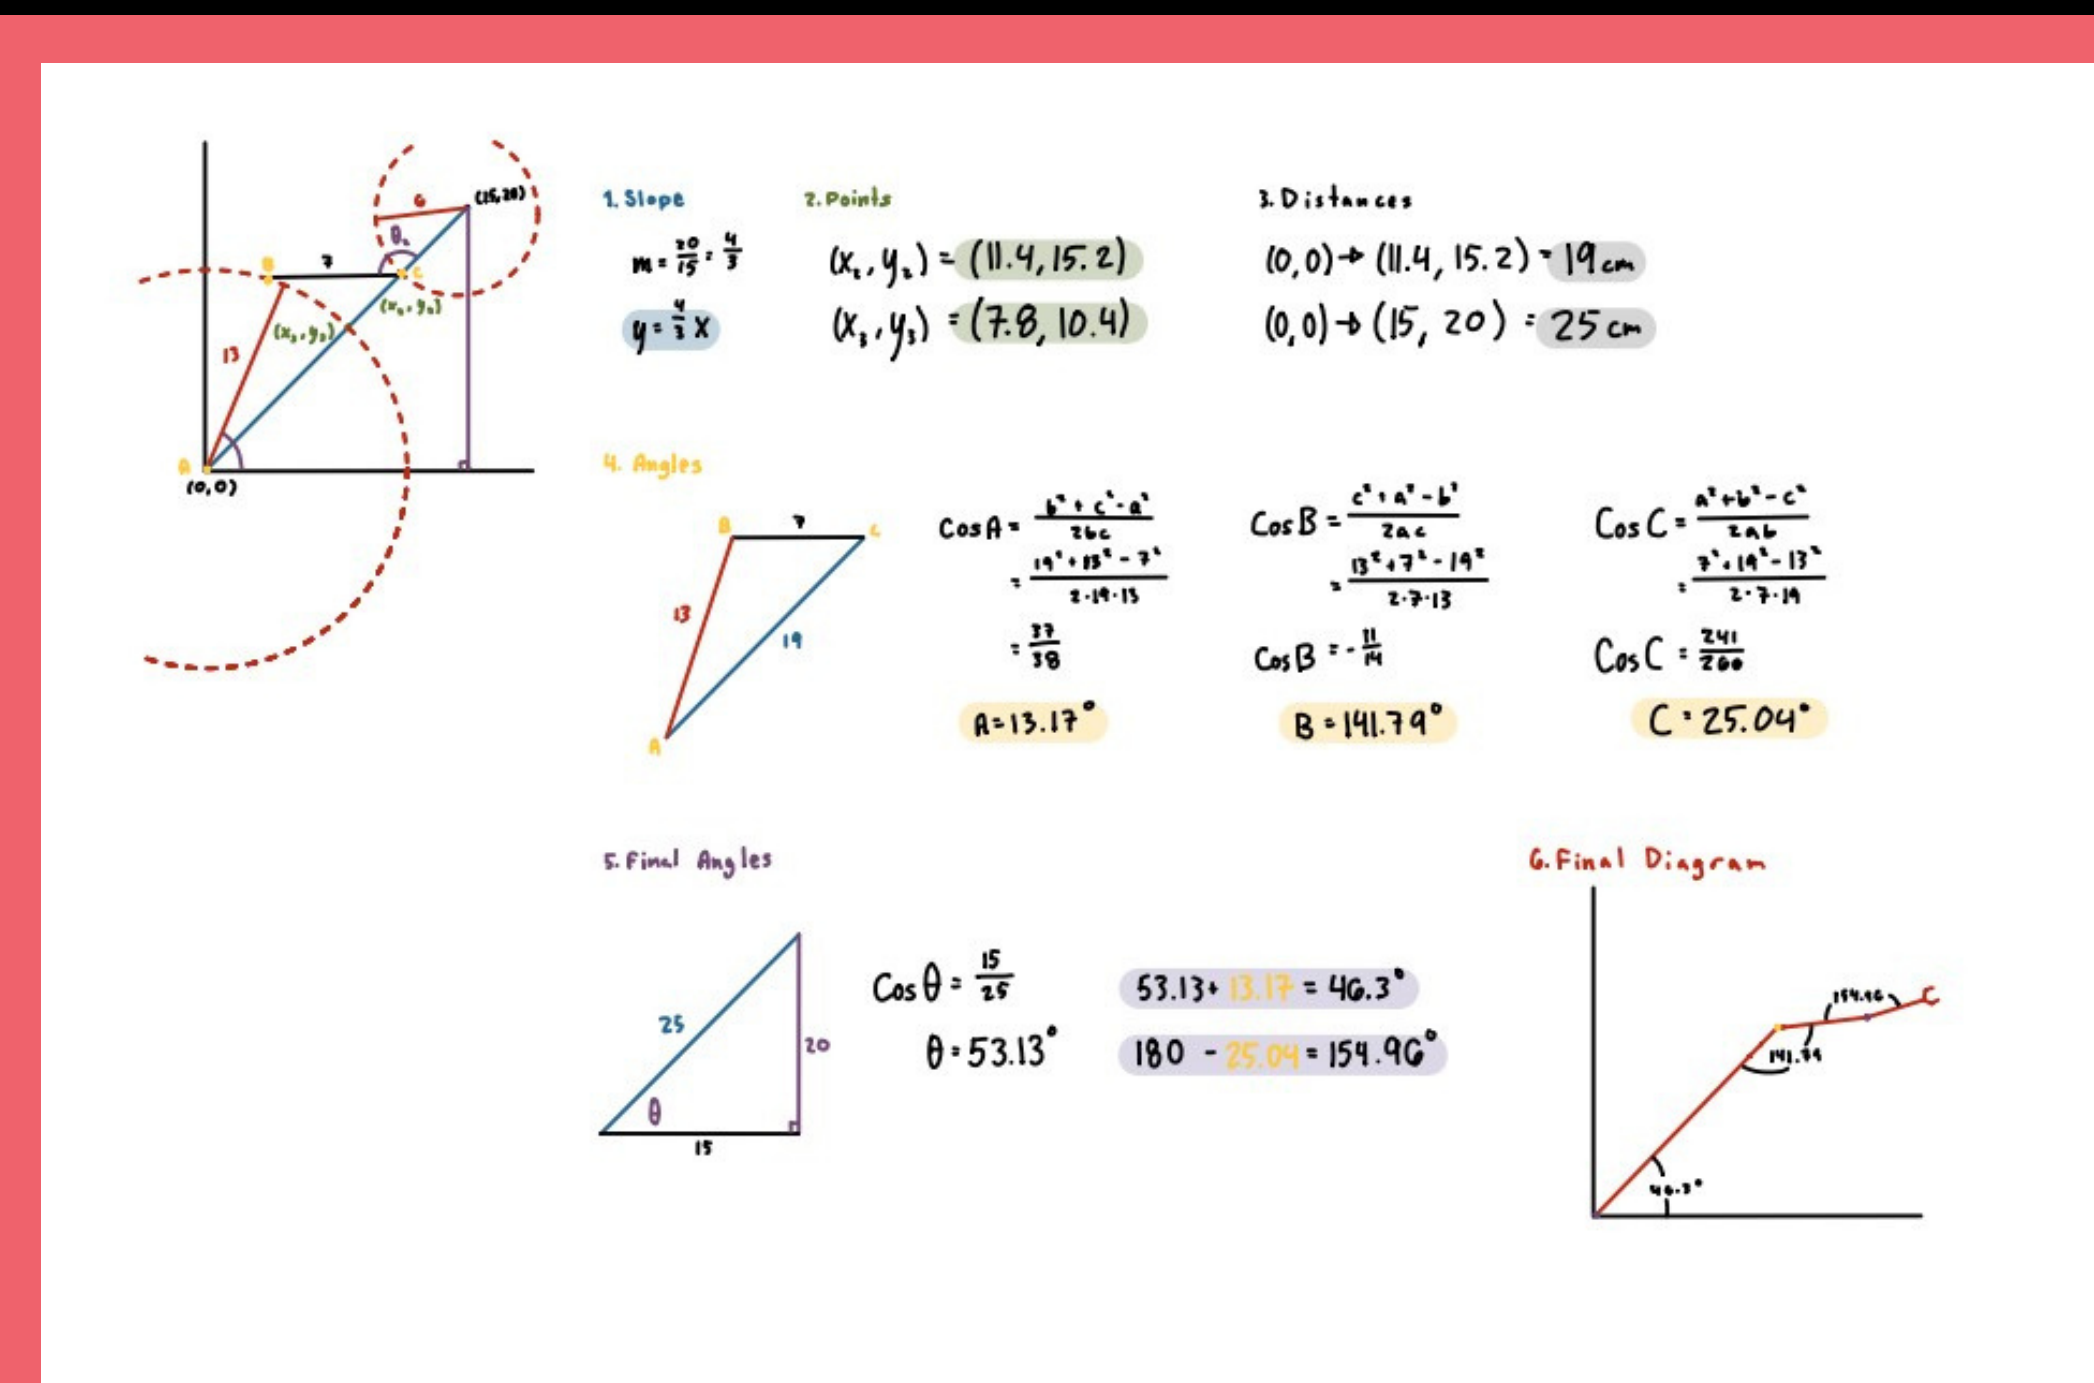 (15,20)
6
θ₂
B
7
C
(x₂,y₂)
(x₃,y₃)
13
A
(0,0)
1. Slope
m = 20/15 = 4/3
y = 4/3 x
2. Points
(x₂, y₂) = (11.4, 15.2)
(x₃, y₃) = (7.8, 10.4)
3. Distances
(0,0) → (11.4, 15.2) = 19cm
(0,0) → (15, 20) = 25cm
4. Angles
B
7
C
13
19
A
Cos A = b² + c² - a² / 2bc
= 19² + 13² - 7² / 2·19·13
= 37/38
A = 13.17°
Cos B = c² + a² - b² / 2ac
= 13² + 7² - 19² / 2·7·13
Cos B = - 11/14
B = 141.79°
Cos C = a² + b² - c² / 2ab
= 7² + 19² - 13² / 2·7·19
Cos C = 241/260
C = 25.04°
5. Final Angles
25
20
θ
15
Cos θ = 15/25
θ = 53.13°
53.13 + 13.17 = 46.3°
180 - 25.04 = 154.96°
6. Final Diagram
154.96
141.79
46.3°